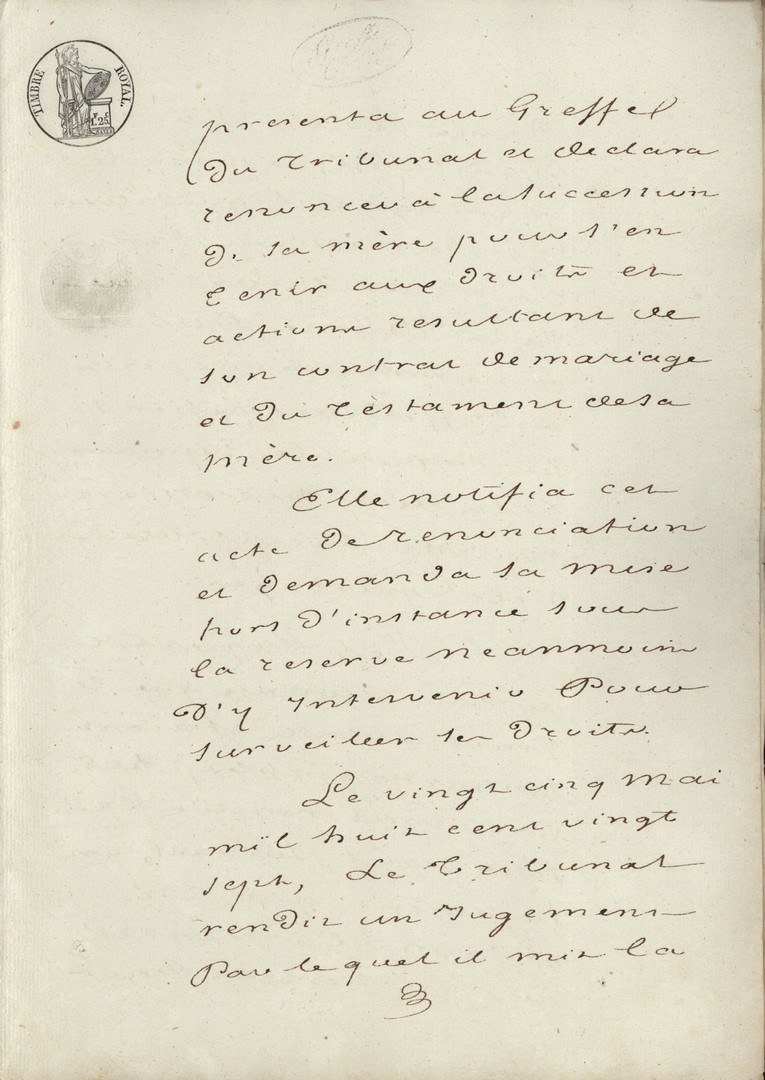 TIMBRE ROYAL.
1F.25c
présenta au Greffe
du Tribunal et déclara
renoncer à la succession
de sa mère pour s'en
tenir aux droits et
actions resultant de
son contrat de mariage
et du testament de sa
mère.
Elle notifia cet
acte de renonciation
et demanda sa mise
hors d'instance sous
la reserve neanmoins
d'y Intervenir Pour
surveiller ses droits.
Le vingt cinq mai
mil huit cent vingt
sept, Le Tribunal
rendit un Jugement
Par lequel il mit la